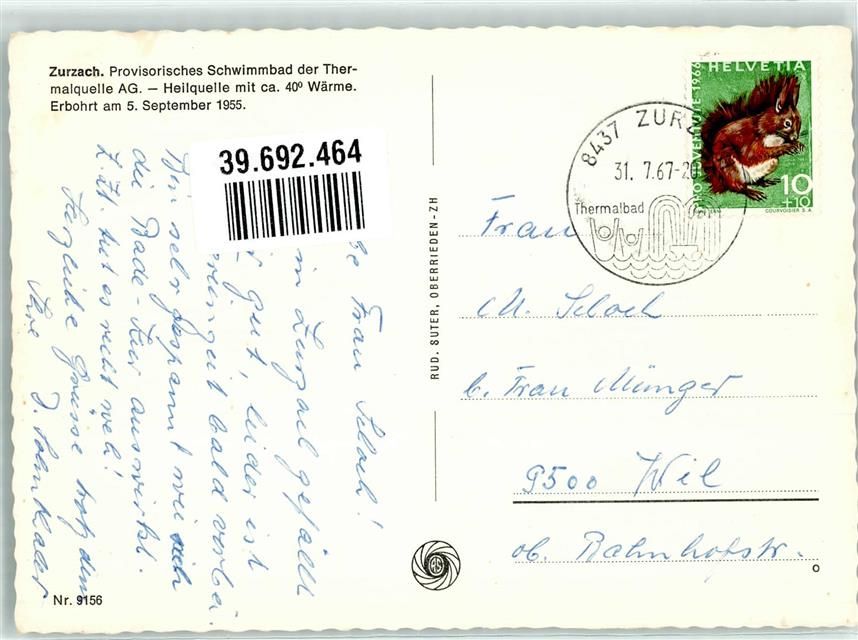 Zurzach. Provisorisches Schwimmbad der Ther-
malquelle AG. — Heilquelle mit ca. 40º Wärme.
Erbohrt am 5. September 1955.
39.692.464
Frau
in Zurzach gefällt
gut, leider ist
bald vorbei.
Bin sehr gespannt wie sich
die Bade-Kur auswirkt.
z. Zt. tut es recht weh!
Herzliche Grüsse trotzdem
Ihre
Nr. 9156
RUD. SUTER, OBERRIEDEN-ZH
8437 ZURZ
31. 7.67-20
Thermalbad
HELVETIA
PRO JUVENTUTE 1966
10
+10
COURVOISIER S.A.
Frau
M. Schoch
b. Frau Münger
9500 Wil
ob. Bahnhofstr.